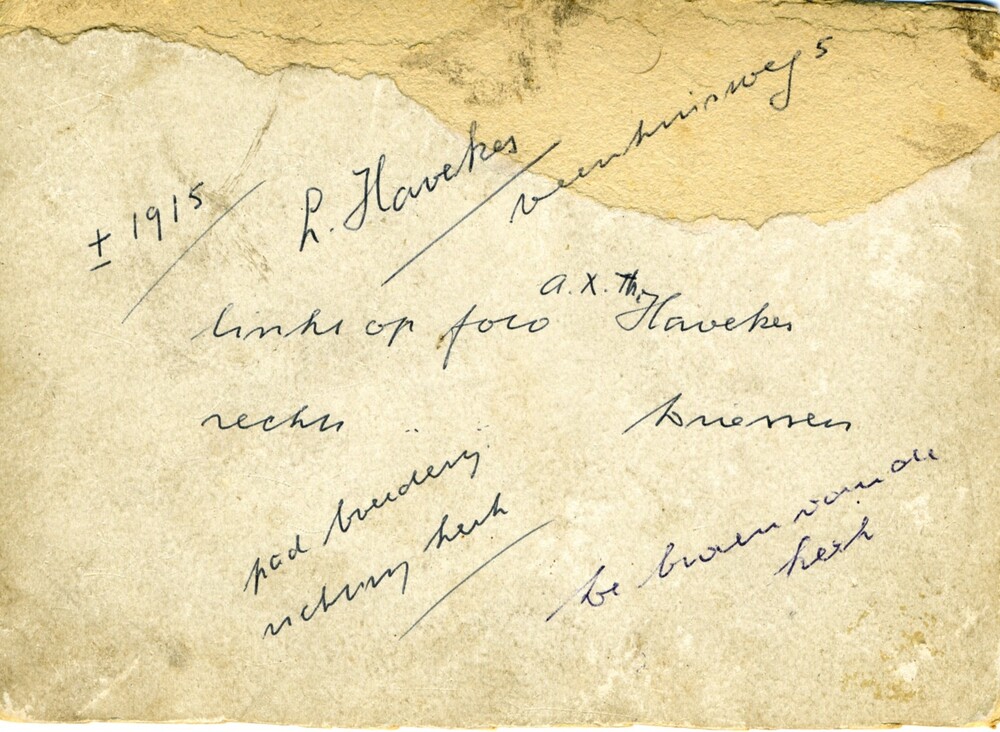 ± 1915
h. Havekes
veenhuisweg 5
links op foto a.x.th. Havekes
rechts Driessen
pad boerderij
richting kerk
de broer van de
kerk